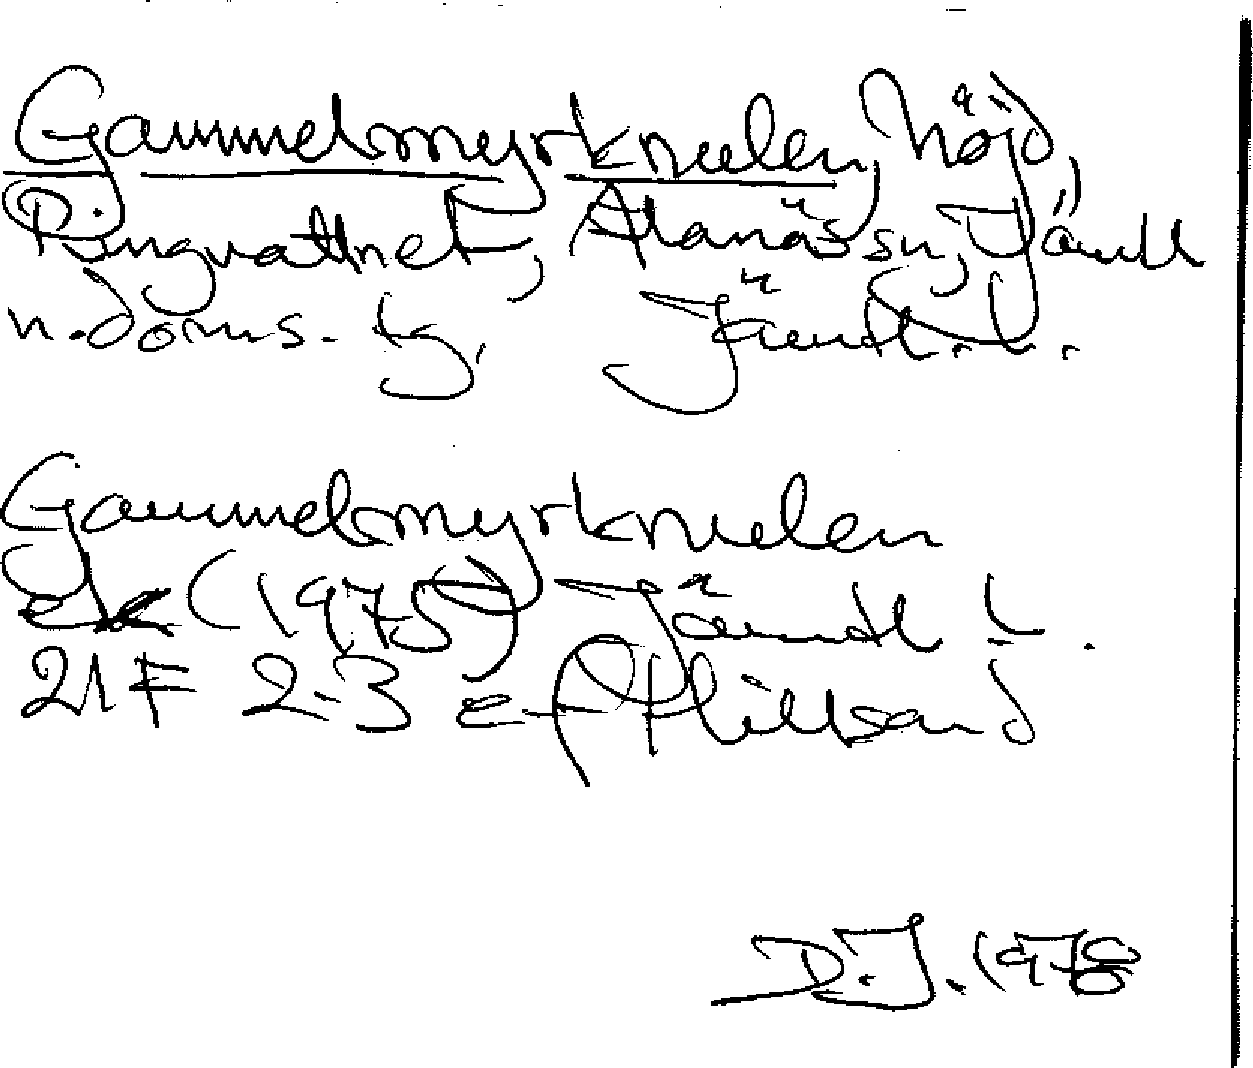 Gammelsmyrknulen, höjd,
Ringvattnet, Alanäs sn, Jämtl
n. doms. tg, Jämtl. l.
Gammelsmyrknulen
Ek (1975) Jämtl L.
21F 2-3 e-f Hillsand
D.J. 1978